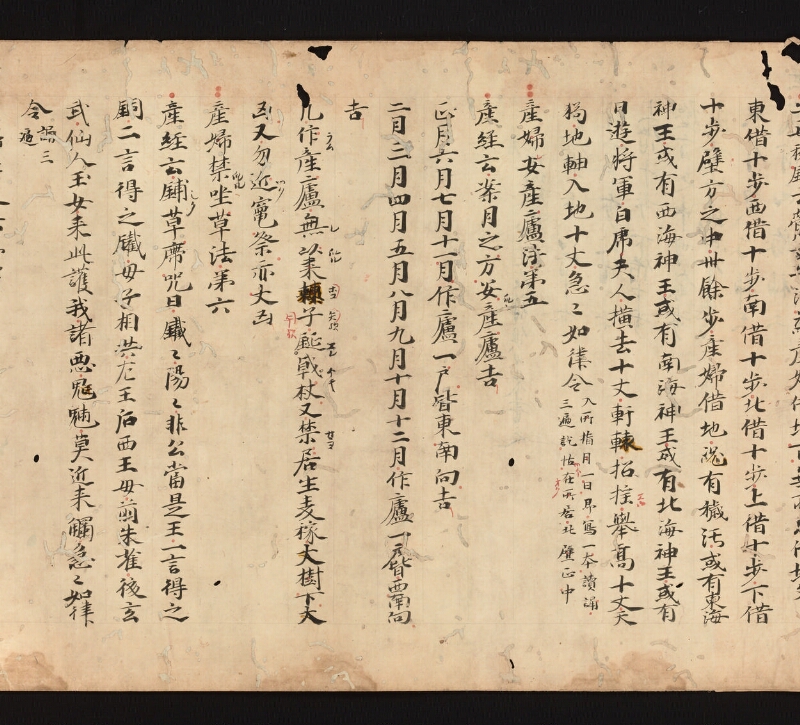 東借十歩西借十歩南借十歩北借十歩上借十歩下借
十歩壁方之中卅餘歩産婦借地恐有穢汚或有東海
神王或有西海神王或有南海神王或有北海神王或有
日遊将軍白席夫人横去十丈軒轅招揺舉高十丈天
狗地軸入地十丈急〻如律令
入所指月一日即寫一本讀誦
三遍訖怗在所居北壁正中
産婦安産廬法第五
産經云按月之方安産廬吉
正月六月七月十一月作廬一戸皆東南向吉
二月三月四月五月八月九月十月十二月作廬一戸皆西南向
吉
凡作産廬無以棗
子鋋戟杖又禁居生麦稼大樹下大
凶又勿近竈祭亦大凶
産婦禁坐草法第六
産經云鋪草席咒曰鐵〻陽〻非公當是王一言得之
銅二言得之鐵母子相
王后西王母前朱雀後玄
武仙人玉女来此護我諸惡魍魎莫近来觸急〻如律
令
誦三
遍